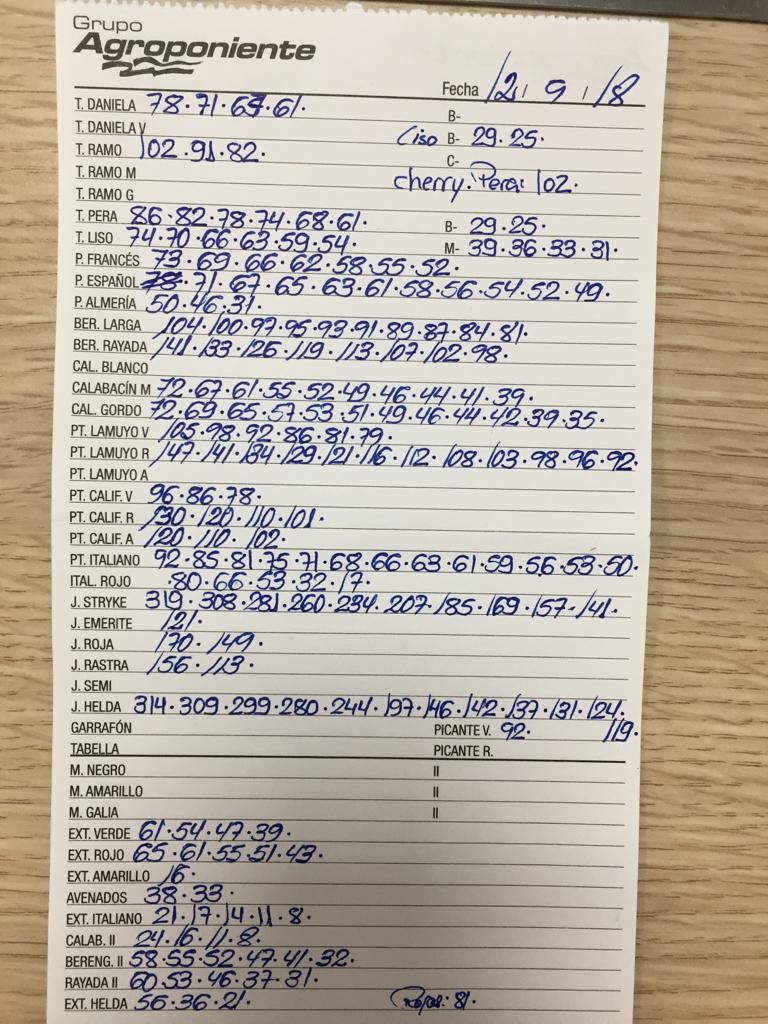 Grupo
Agroponiente
Fecha 12 / 9 / 18
T. DANIELA 78.71.67.61. B-
T. DANIELA V Liso B- 29.25.
T. RAMO 102.91.82. C-
T. RAMO M cherry. Pera: 102.
T. RAMO G
T. PERA 86.82.78.74.68.61. B- 29.25.
T. LISO 74.70.66.63.59.54. M- 39.36.33.31.
P. FRANCÉS 73.69.66.62.58.55.52.
P. ESPAÑOL 71.67.65.63.61.58.56.54.52.49.
P. ALMERÍA 50.46.31.
BER. LARGA 104.100.97.95.93.91.89.87.84.81.
BER. RAYADA 141.133.126.119.113.107.102.98.
CAL. BLANCO
CALABACÍN M 72.67.61.55.52.49.46.44.41.39.
CAL. GORDO 72.69.65.57.53.51.49.46.44.42.39.35.
PT. LAMUYO V 105.98.92.86.81.79.
PT. LAMUYO R 147.141.134.129.121.116.112.108.103.98.96.92.
PT. LAMUYO A
PT. CALIF. V 96.86.78.
PT. CALIF. R 130.120.110.101.
PT. CALIF. A 120.110.102.
PT. ITALIANO 92.85.81.75.71.68.66.63.61.59.56.53.50.
ITAL. ROJO 80.66.53.32.17.
J. STRYKE 319.308.281.260.234.207.185.169.157.141.
J. EMERITE 121.
J. ROJA 170.149.
J. RASTRA 156.113.
J. SEMI
J. HELDA 314.309.299.280.244.197.146.142.137.131.124.
GARRAFÓN PICANTE V. 92. 119.
TABELLA PICANTE R.
M. NEGRO II
M. AMARILLO II
M. GALIA II
EXT. VERDE 61.54.47.39.
EXT. ROJO 65.61.55.51.43.
EXT. AMARILLO 16.
AVENADOS 38.33.
EXT. ITALIANO 21.17.14.11.8.
CALAB. II 24.16.11.8.
BERENG. II 58.55.52.47.41.32.
RAYADA II 60.53.46.37.31.
EXT. HELDA 56.36.21. 81.